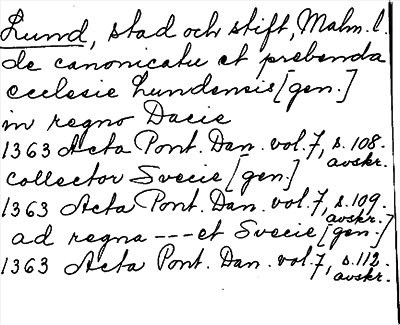 Lund, stad och stift, Malm. l.
de canonicatu et prebenda
ecclesie Lundensis [gen.]
in regno Dacie
1363 Acta Pont. Dan. vol. 7, s. 108.
avskr.
collector Svecie [gen.]
1363 Acta Pont. Dan. vol. 7, s. 109.
avskr.
ad regna --- et Svecie [gen.]
1363 Acta Pont. Dan. vol. 7, s. 112.
avskr.